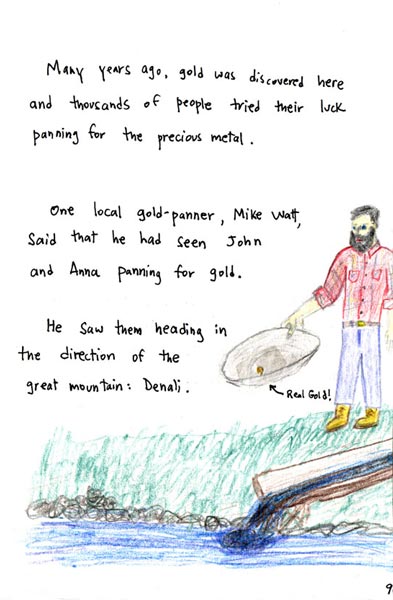 Many years ago, gold was discovered here
and thousands of people tried their luck
panning for the precious metal.
One local gold-panner, Mike Watt,
said that he had seen John
and Anna panning for gold.
He saw them heading in
the direction of the
great mountain: Denali.
Real Gold!